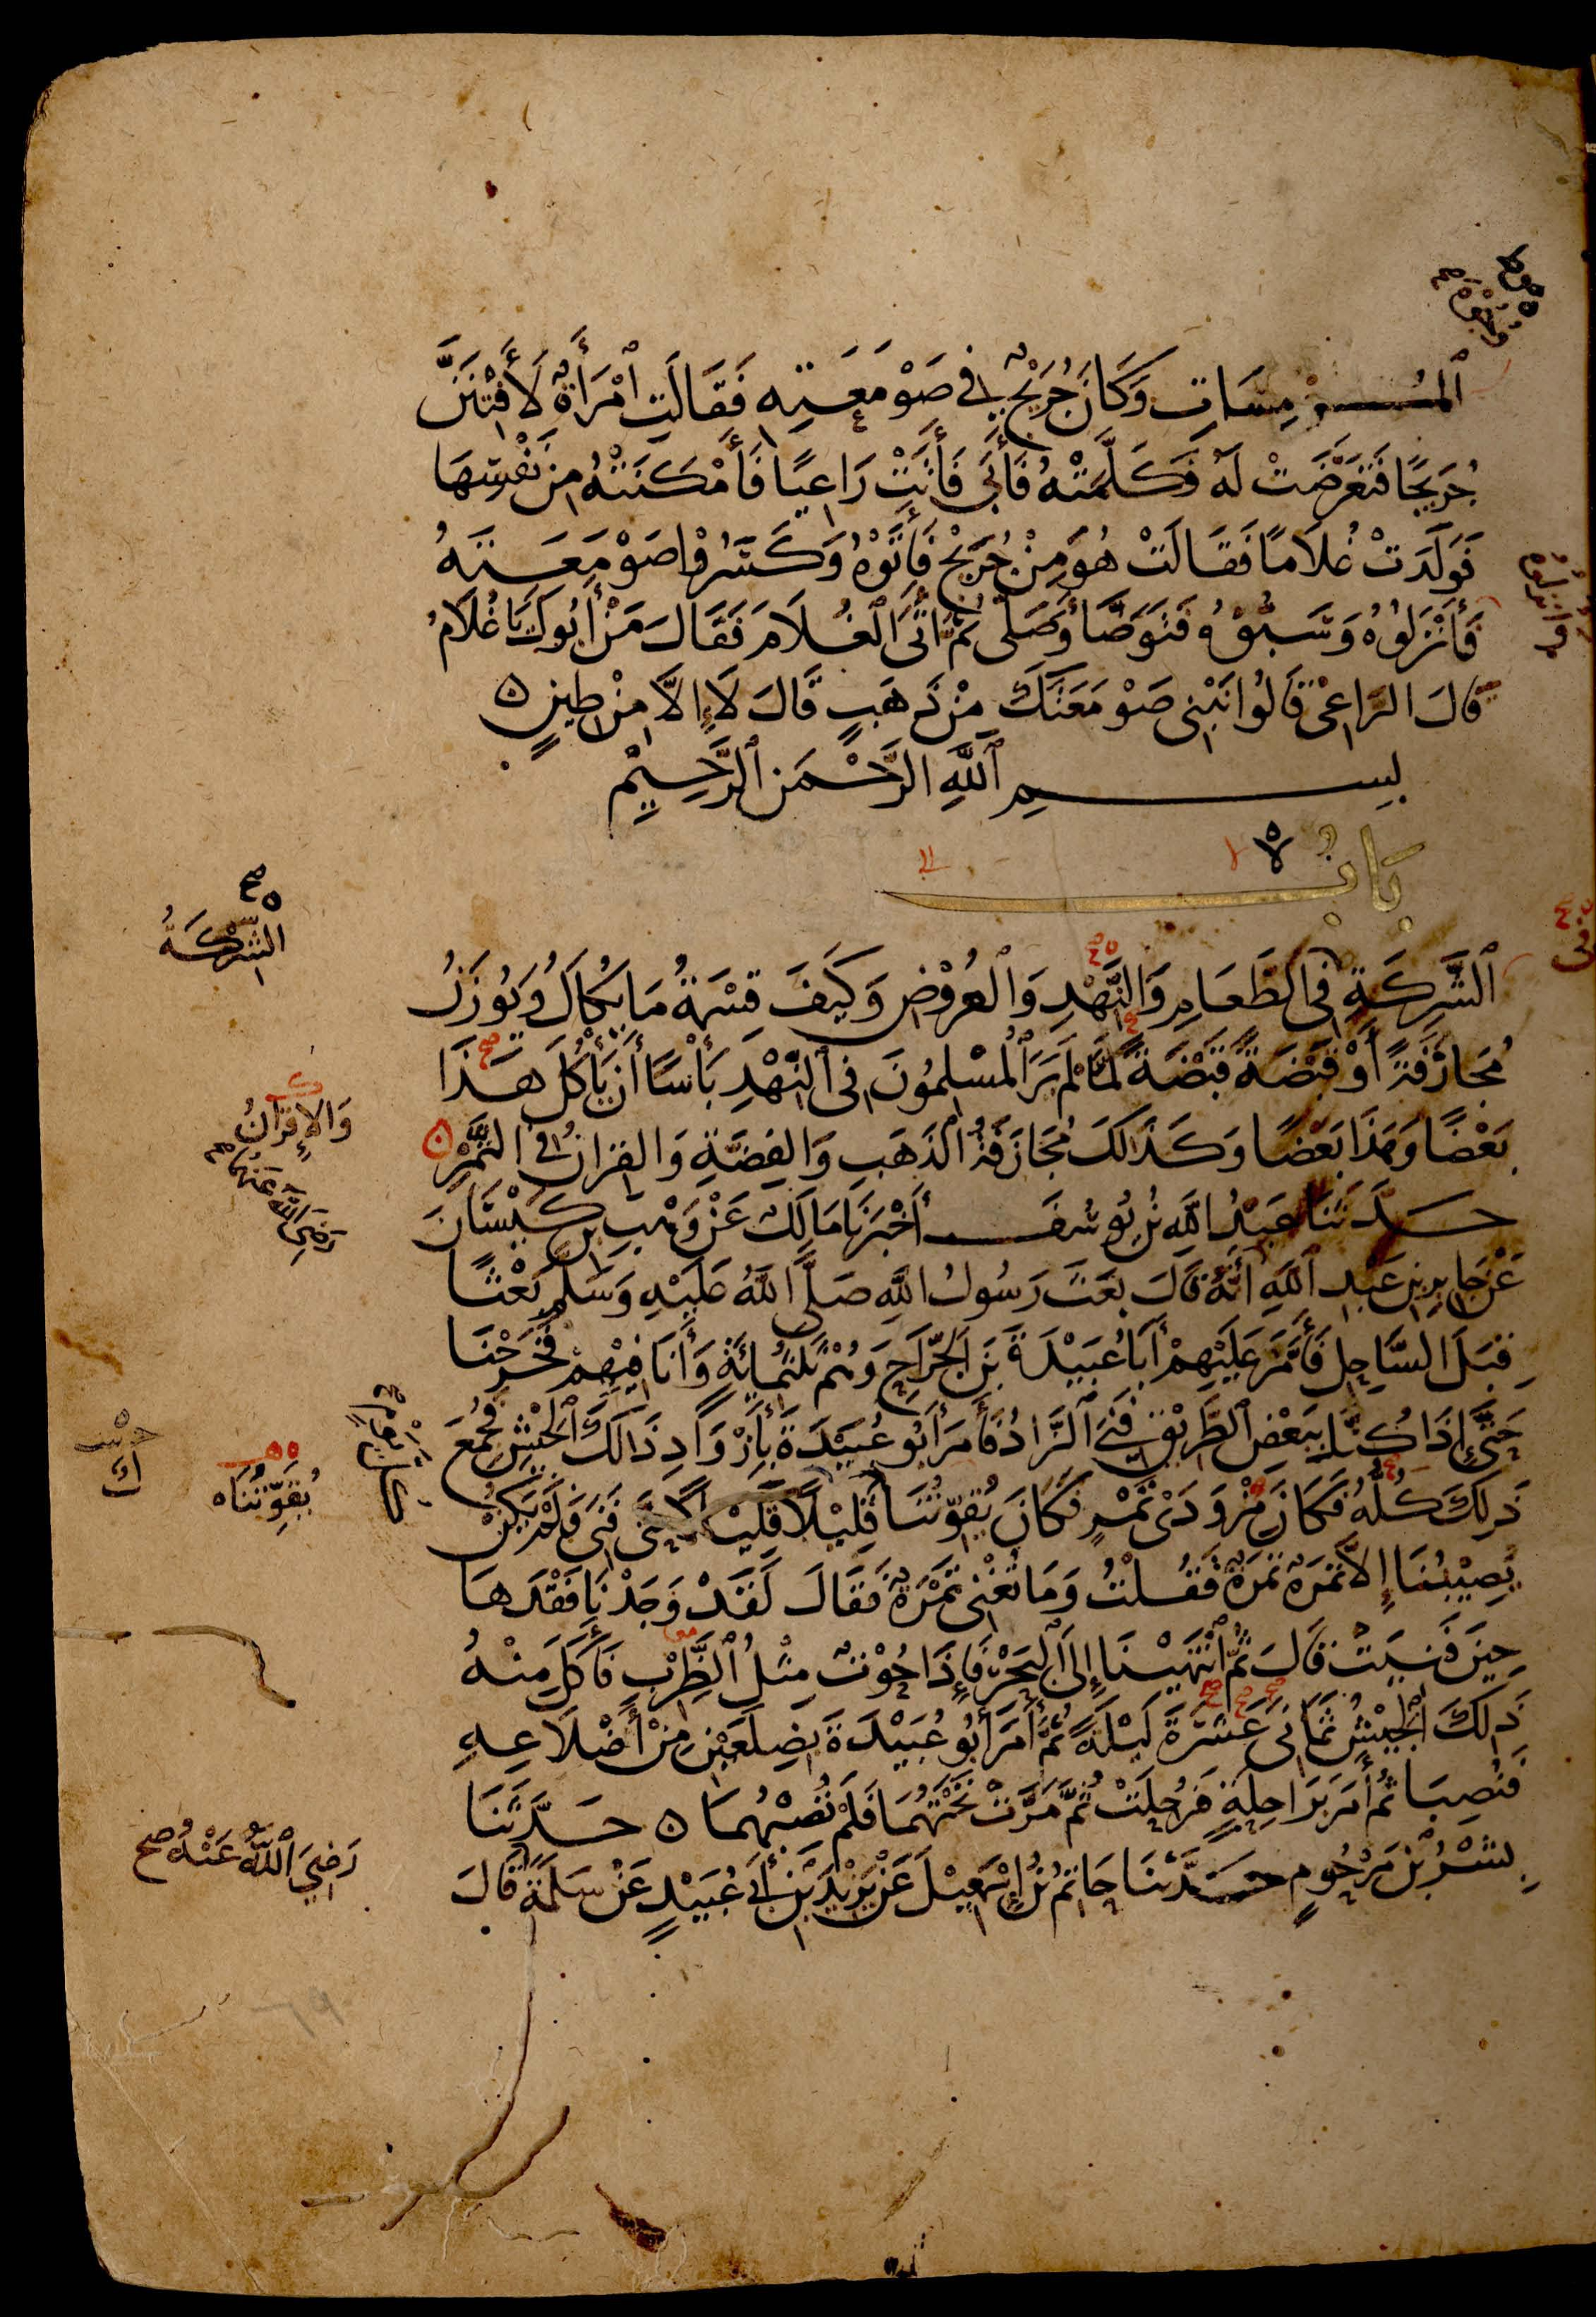 ٱلْمُوْمِسَاتِ وَكَانَ جُرَيْجٌ فِي صَوْمَعَتِهِ فَقَالَتِ ٱمْرَأَةٌ لَأَفْتِنَنَّ
جُرَيْجًا فَتَعَرَّضَتْ لَهُ فَكَلَّمَتْهُ فَأَبَى فَأَتَتْ رَاعِيًا فَأَمْكَنَتْهُ مِنْ نَفْسِهَا
فَوَلَدَتْ غُلَامًا فَقَالَتْ هُوَ مِنْ جُرَيْجٍ فَأَتَوْهُ وَكَسَرُوا صَوْمَعَتَهُ
فَأَنْزَلُوهُ وَسَبُّوْهُ فَتَوَضَّأَ وَصَلَّى ثُمَّ أَتَى ٱلْغُلَامَ فَقَالَ مَنْ أَبُوكَ يَا غُلَامُ
قَالَ الرَّاعِي قَالُوا نَبْنِي صَوْمَعَتَكَ مِنْ ذَهَبٍ قَالَ لَا إِلَّا مِنْ طِينٍ ٥
بِسْمِ ٱللَّهِ الرَّحْمَنِ ٱلرَّحِيْمِ
بَابُ
لا
إلى
ٱلشَّرِكَةِ فِي ٱلطَّعَامِ وَالنَّهْدِ وَٱلْعُرُوْضِ وَكَيْفَ قِسْمَةُ مَا يُكَالُ وَيُوْزَنُ
الشِّرْكَةُ
مُجَازَفَةً أَوْ قَبْضَةً قَبْضَةً لَمَّا لَمْ يَرَ ٱلْمُسْلِمُونَ فِي ٱلنَّهْدِ بَأْسًا أَنْ يَأْكُلَ هَذَا
بَعْضًا وَهَذَا بَعْضًا وَكَذَلِكَ مُجَازَفَةُ ٱلذَّهَبِ وَالفِضَّةِ وَالقِرَانُ فِي التَّمْرِ ٥
وَالإِقْرَانُ
حَدَّثَنَا عَبْدُ اللَّهِ بْنُ يُوسُفَ أَخْبَرَنَا مَالِكٌ عَنْ وَهْبِ بْنِ كَيْسَانَ
رَضِيَ اللَّهُ عَنْهُمَا
عَنْ جَابِرِ بْنِ عَبْدِ ٱللَّهِ أَنَّهُ قَالَ بَعَثَ رَسُولُ اللَّهِ صَلَّى اللَّهُ عَلَيْهِ وَسَلَّمَ بَعْثًا
قِبَلَ السَّاحِلِ فَأَمَّرَ عَلَيْهِمْ أَبَا عُبَيْدَةَ بْنَ الجَرَّاحِ وَهُمْ ثَلَثُمِائَةٍ وَأَنَا فِيْهِمْ فَخَرَجْنَا
حَتَّى إِذَا كُنَّا بِبَعْضِ ٱلطَّرِيْقِ فَنِيَ ٱلزَّادُ فَأَمَرَ أَبُو عُبَيْدَةَ بِأَزْوَادِ ذَالِكَ ٱلْجَيْشِ فَجُمِعَ
ذَلِكَ كُلُّهُ فَكَانَ مِزْوَدَيْ تَمْرٍ فَكَانَ يُقَوِّتُنَا قَلِيْلًا قَلِيْلًا حَتَّى فَنِيَ فَلَمْ يَكُنْ
يُقَوِّتُنَاه
يُصِيْبُنَا إِلَّا تَمْرَةٌ تَمْرَةٌ فَقُلْتُ وَمَا تُغْنِي تَمْرَةٌ فَقَالَ لَقَدْ وَجَدْنَا فَقْدَهَا
حِينَ فَنِيَتْ قَالَ ثُمَّ ٱنْتَهَيْنَا إِلَى ٱلْبَحْرِ فَإِذَا حُوْتٌ مِثْلُ ٱلظَّرِبِ فَأَكَلَ مِنْهُ
ذَلِكَ ٱلْجَيْشُ ثَمَانِيَ عَشْرَةَ لَيْلَةً ثُمَّ أَمَرَ أَبُو عُبَيْدَةَ بِضِلَعَيْنِ مِنْ أَضْلَاعِهِ
فَنُصِبَا ثُمَّ أَمَرَ بِرَاحِلَةٍ فَرُحِلَتْ ثُمَّ مَرَّتْ تَحْتَهُمَا فَلَمْ تُصِبْهُمَا ٥ حَدَّثَنَا
بِشْرُ بْنُ مَرْحُومٍ حَدَّثَنَا حَاتِمُ بْنُ إِسْمَعِيْلَ عَنْ يَزِيْدَ بْنِ أَبِي عُبَيْدٍ عَنْ سَلَمَةَ قَالَ
رَضِيَ ٱللَّهُ عَنْهُ صح